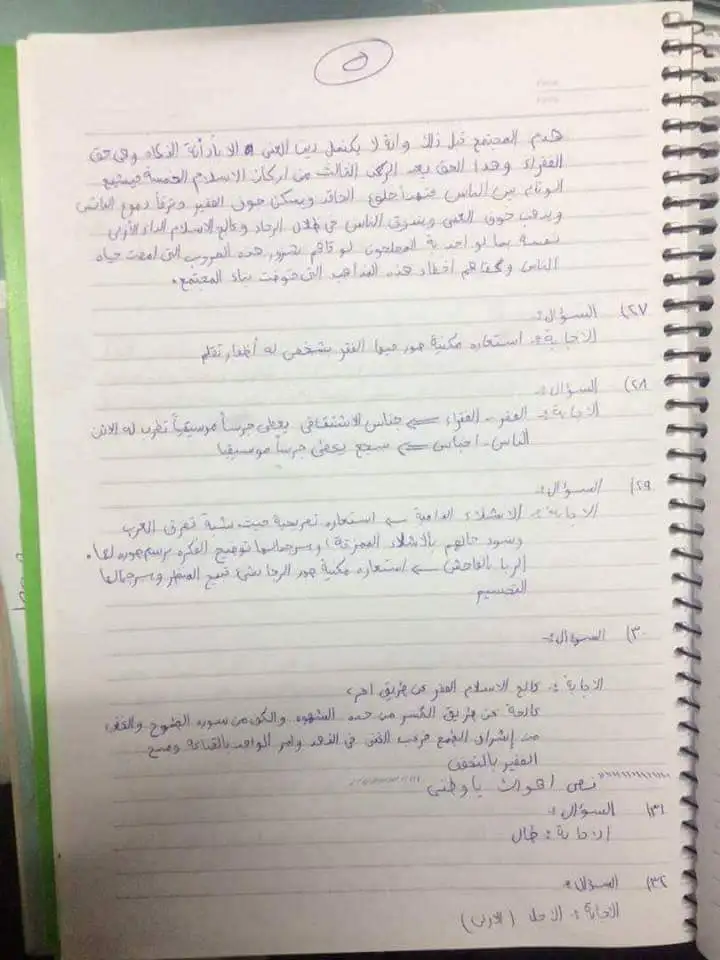 ٥
هدم المجتمع قبل ذلك وانه لا يكتمل دين الغنى الا بأدائه الزكاه وهي حق
الفقراء وهذا الحق يعد الركن الثالث من اركان الاسلام الخمسة فيشيع
الوئام بين الناس فتهدأ ضلوع الحاقد ويسكن خوف الفقير وترقأ دموع البائس
ويذهب خوف الغنى ويتذوق الناس في ظلال الرخاء وعالج الاسلام الداء الأولى
نفسه بما لو اخذ به المصلحون لو قاهم شرور هذه الحروب التى حياه
الناس وكفاهم أخطار هذه المذاهب التى بناء المجتمع.
٢٧) السؤال:
الاجابة: استعاره مكنية صور فيها الفقر بشخص له أظفار تقلم
٢٨) السؤال:
الاجابة: الفقر - الفقراء ← جناس الاشتقاقى يعطى جرساً موسيقياً تطرب له الاذن
الناس - اجناس ← سجع يعطى جرساً موسيقيا
٢٩) السؤال:
الاجابة: الاشلاء الدامية ← استعاره تصريحية حيث شبة تفرق العرب
وسوء حالهم بالأشلاء الممزقة) وسرجمالها توضيح الفكره برسم صوره لها.
الربا بالفاحش ← استعاره مكنية صور الربا بشئ قبيح المنظر وسرجمالها
التجسيم
٣٠) السؤال:
الاجابة: عالج الاسلام الفقر عن طريق اخر،
عالجة عن طريق الكسر من حده الشهوه والكف من سوره الطموح والغض
من إشراف الطمع فرغب الغنى في الزهد وامر الواجد بالقناعة ومنح
الفقير بالتعفف
نص اهواك يا وطنى
٣١) السؤال:
الاجابة: طال
٣٢) السؤال:
الاجابة: الاجل